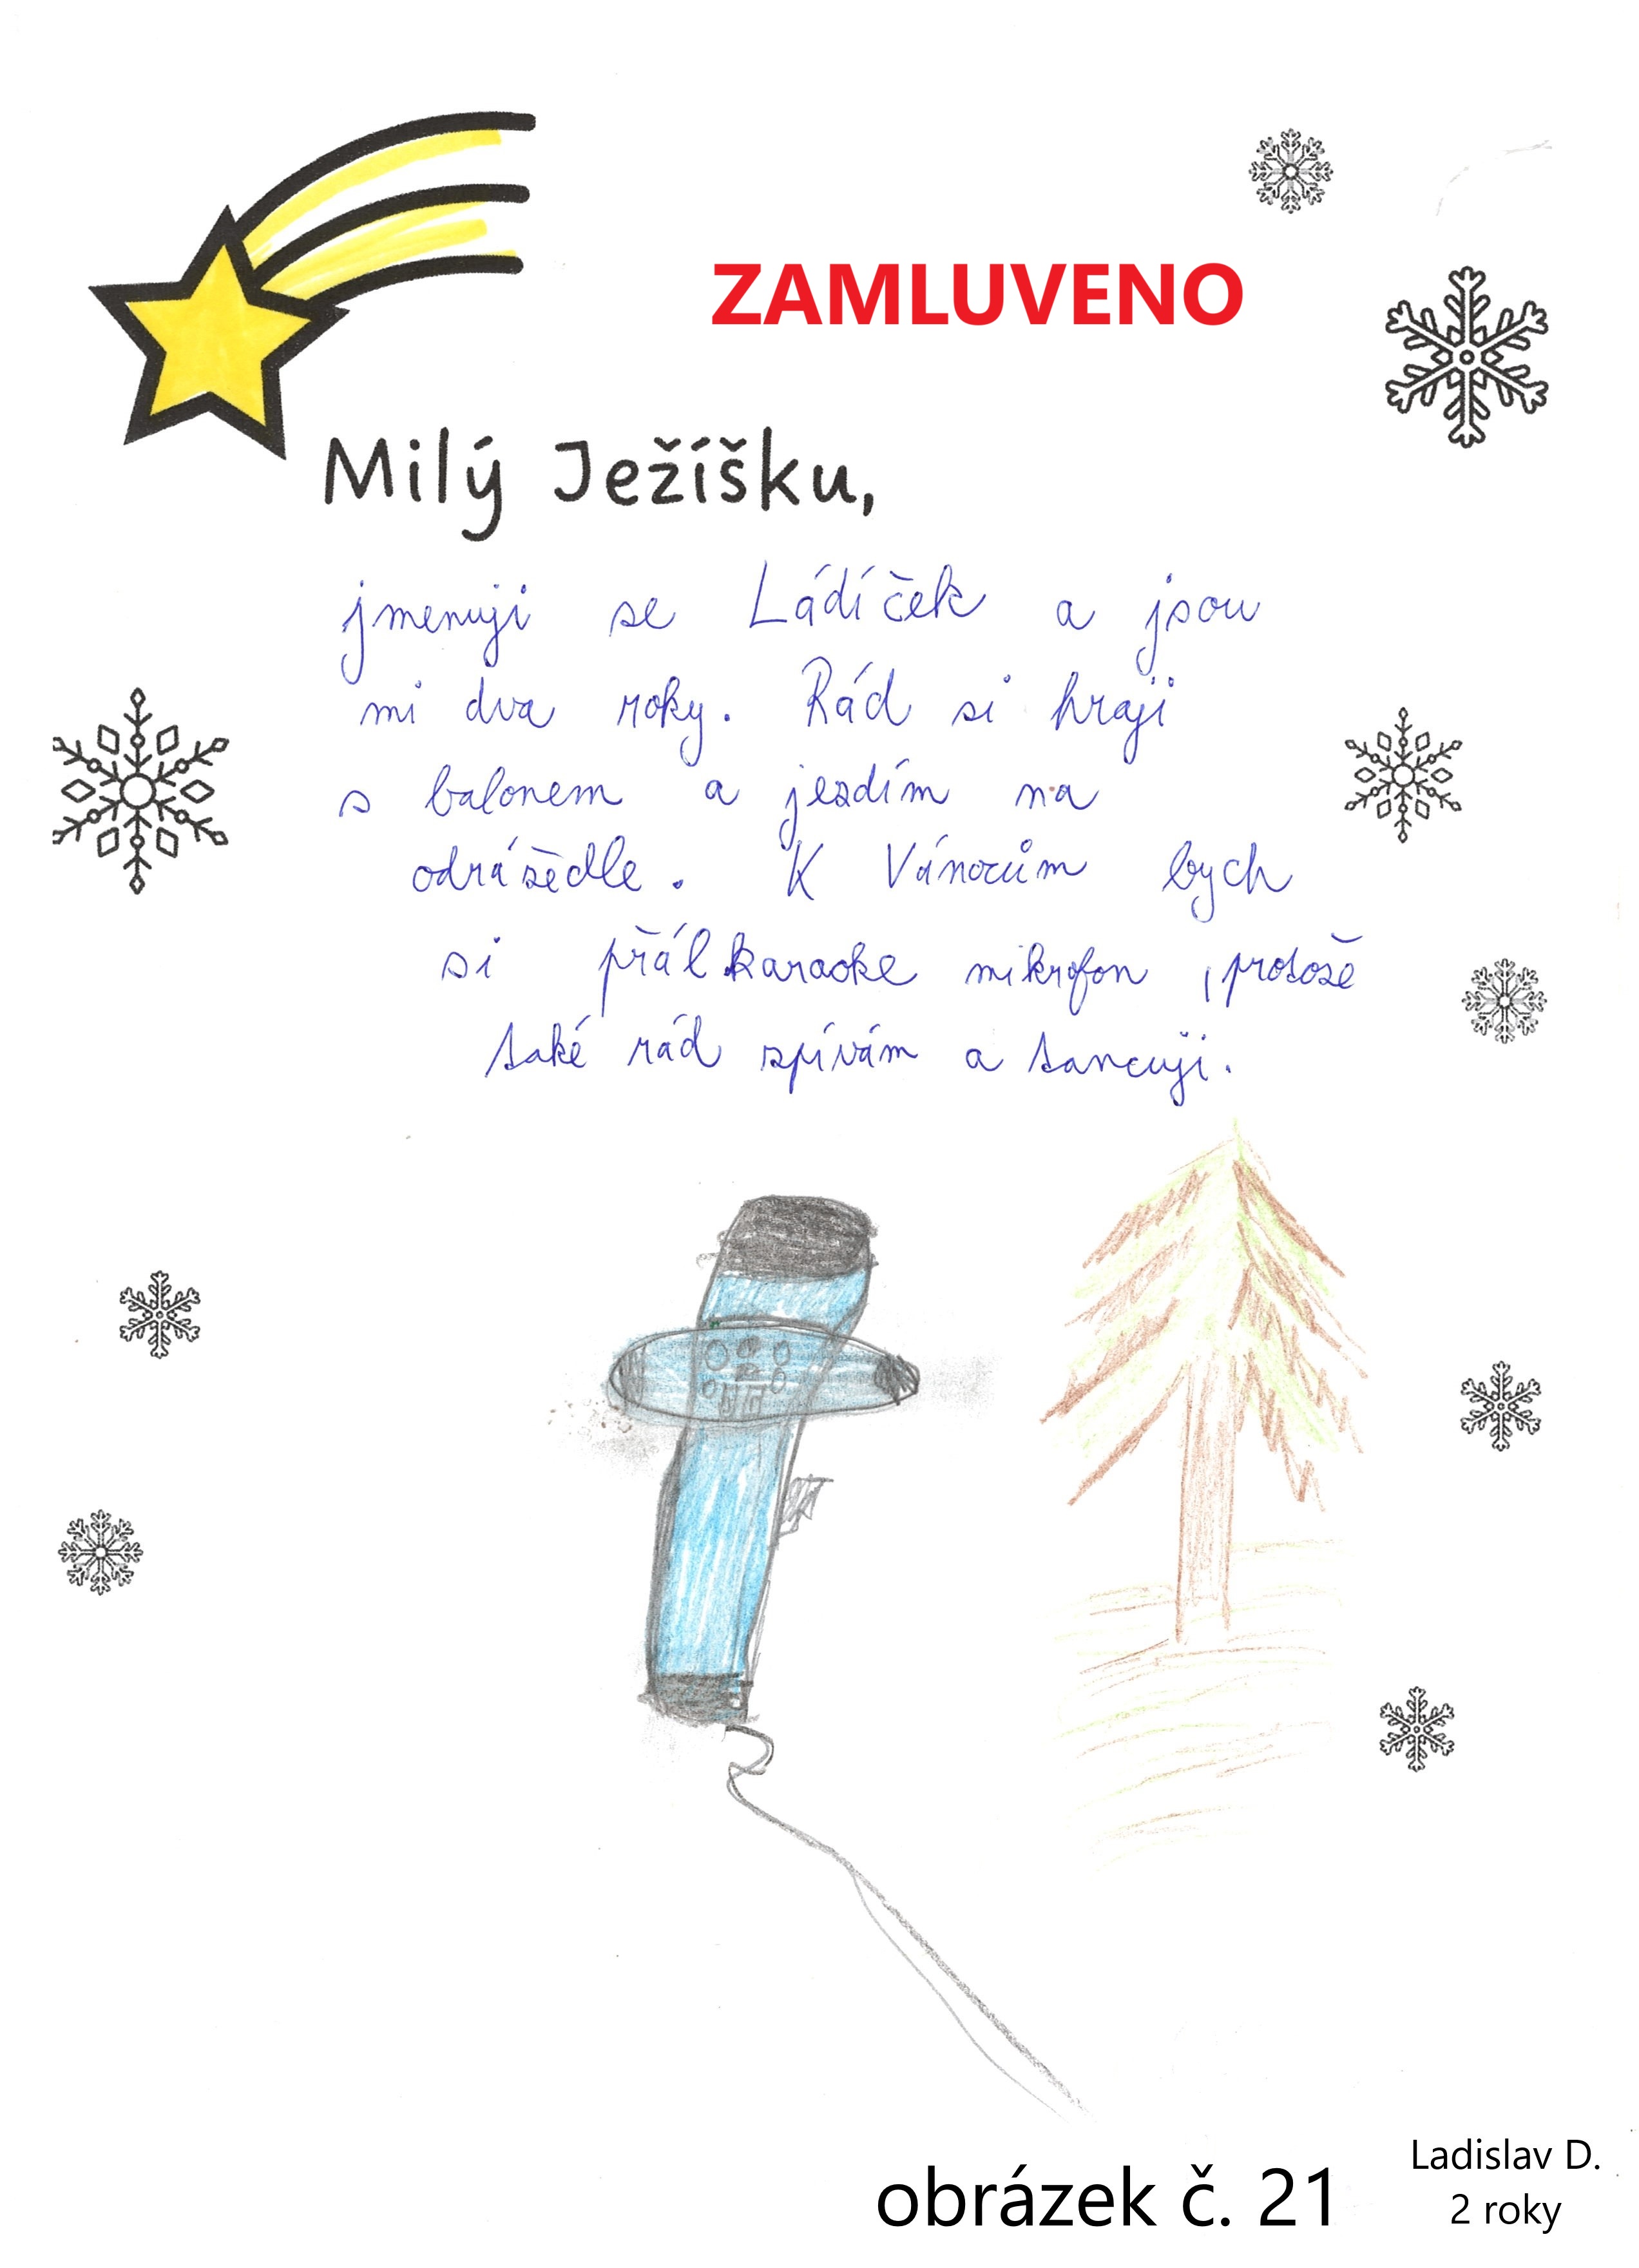 ZAMLUVENO
Milý Ježíšku,
jmenuji se Ládíček a jsou
mi dva roky. Rád si hraji
s balonem a jezdím na
odrážedle. K Vánocům bych
si přál karaoke mikrofon, protože
také rád zpívám a tancuji.
obrázek č. 21
Ladislav D.
2 roky